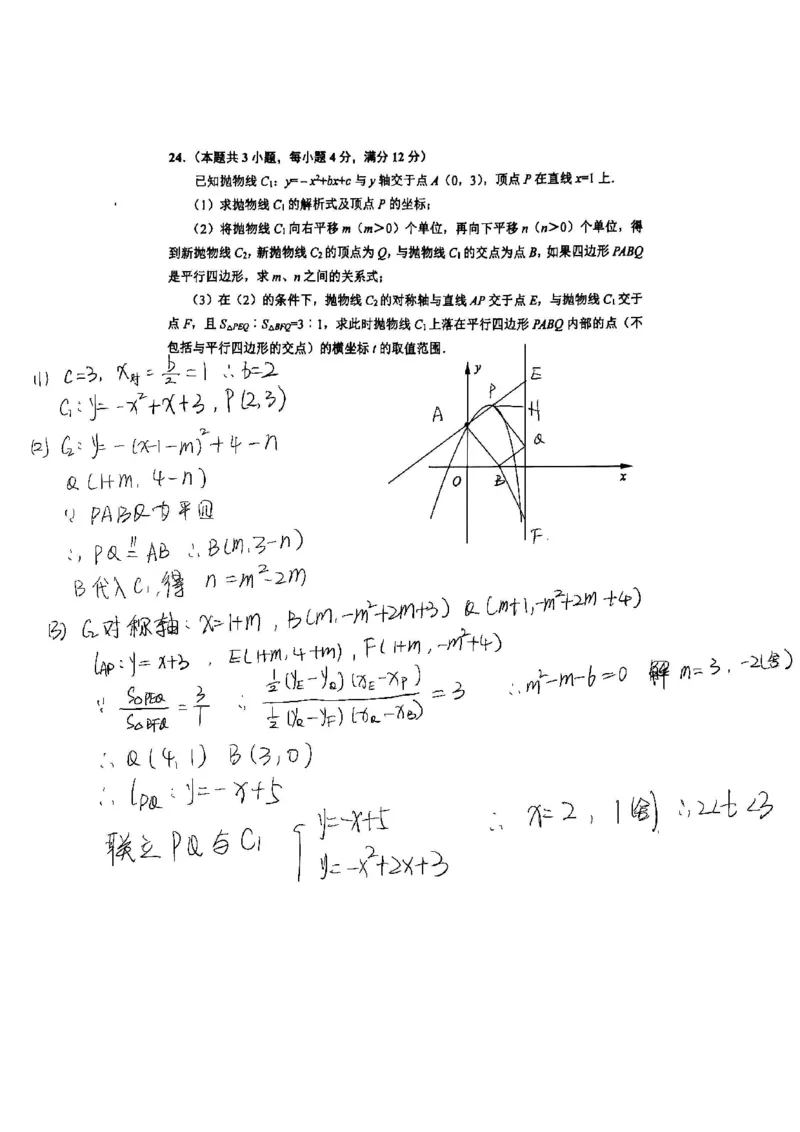 24.（本题共3小题，每小题4分，满分12分）
已知抛物线C₁：y=－x²+bx+c与y轴交于点A（0，3），顶点P在直线x=1上．
（1）求抛物线C₁的解析式及顶点P的坐标；
（2）将抛物线C₁向右平移m（m＞0）个单位，再向下平移n（n＞0）个单位，得
到新抛物线C₂，新抛物线C₂的顶点为Q，与抛物线C₁的交点为点B，如果四边形PABQ
是平行四边形，求m、n之间的关系式；
（3）在（2）的条件下，抛物线C₂的对称轴与直线AP交于点E，与抛物线C₁交于
点F，且S△PEQ∶S△BFQ=3∶1，求此时抛物线C₁上落在平行四边形PABQ内部的点（不
包括与平行四边形的交点）的横坐标t的取值范围．
y
E
P
H
A
Q
O
B
x
F.
(1) C=3, x对 = b/2 = 1 ∴b=2
C₁: y= -x²+x+3, P(2,3)
(2) C₂: y= -(x-1-m)²+4-n
Q(1+m, 4-n)
∵ PABQ为平四
∴ PQ ∥= AB ∴ B(m, 3-n)
B代入C₁,得 n=m²-2m
(3) C₂对称轴: x=1+m , B(m, -m²+2m+3) Q(m+1, -m²+2m+4)
l_AP: y= x+3 , E(1+m, 4+m), F(1+m, -m²+4)
∵ S△PEQ/S△BFQ = 3/1 ∴ ½(y_E-y_Q)(x_E-x_P) / ½(y_Q-y_F)(x_Q-x_B) = 3 ∴m²-m-6=0 解 m=3, -2(舍)
∴ Q(4,1) B(3,0)
∴ l_PQ: y= -x+5
联立PQ与C₁ { y=-x+5 ∴ x=2, 1(舍) ∴2<t<3
y= -x²+2x+3